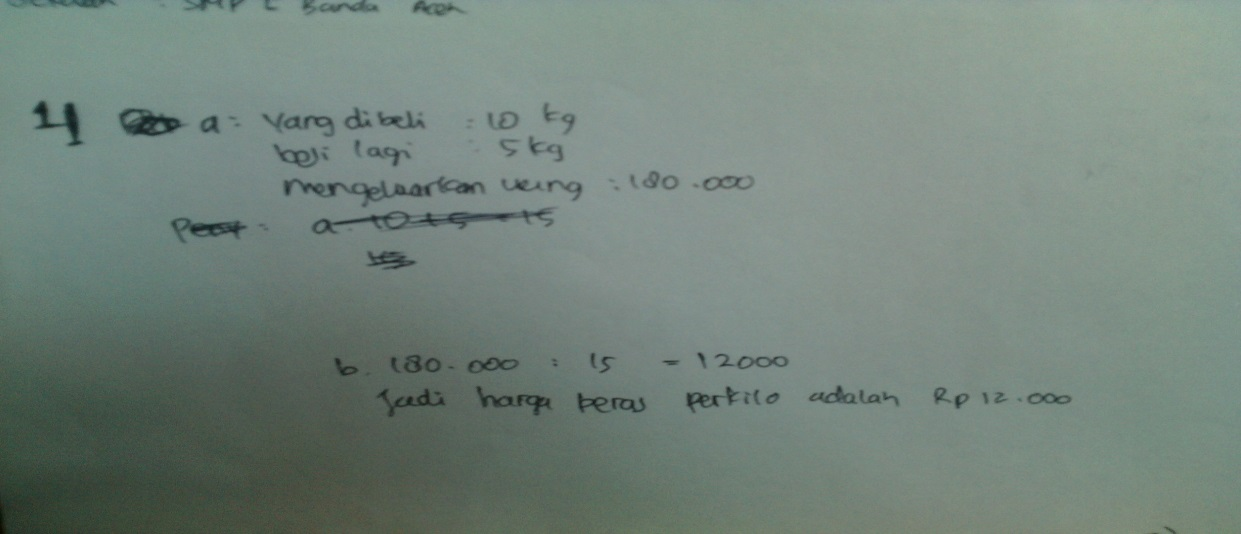 Banda Aceh
1] a: Yang dibeli : 10 kg
beli lagi : 5 kg
mengeluarkan uang : 180.000
a. 10 + 5 = 15
b. 180.000 : 15 = 12000
Jadi harga beras perkilo adalah Rp 12.000